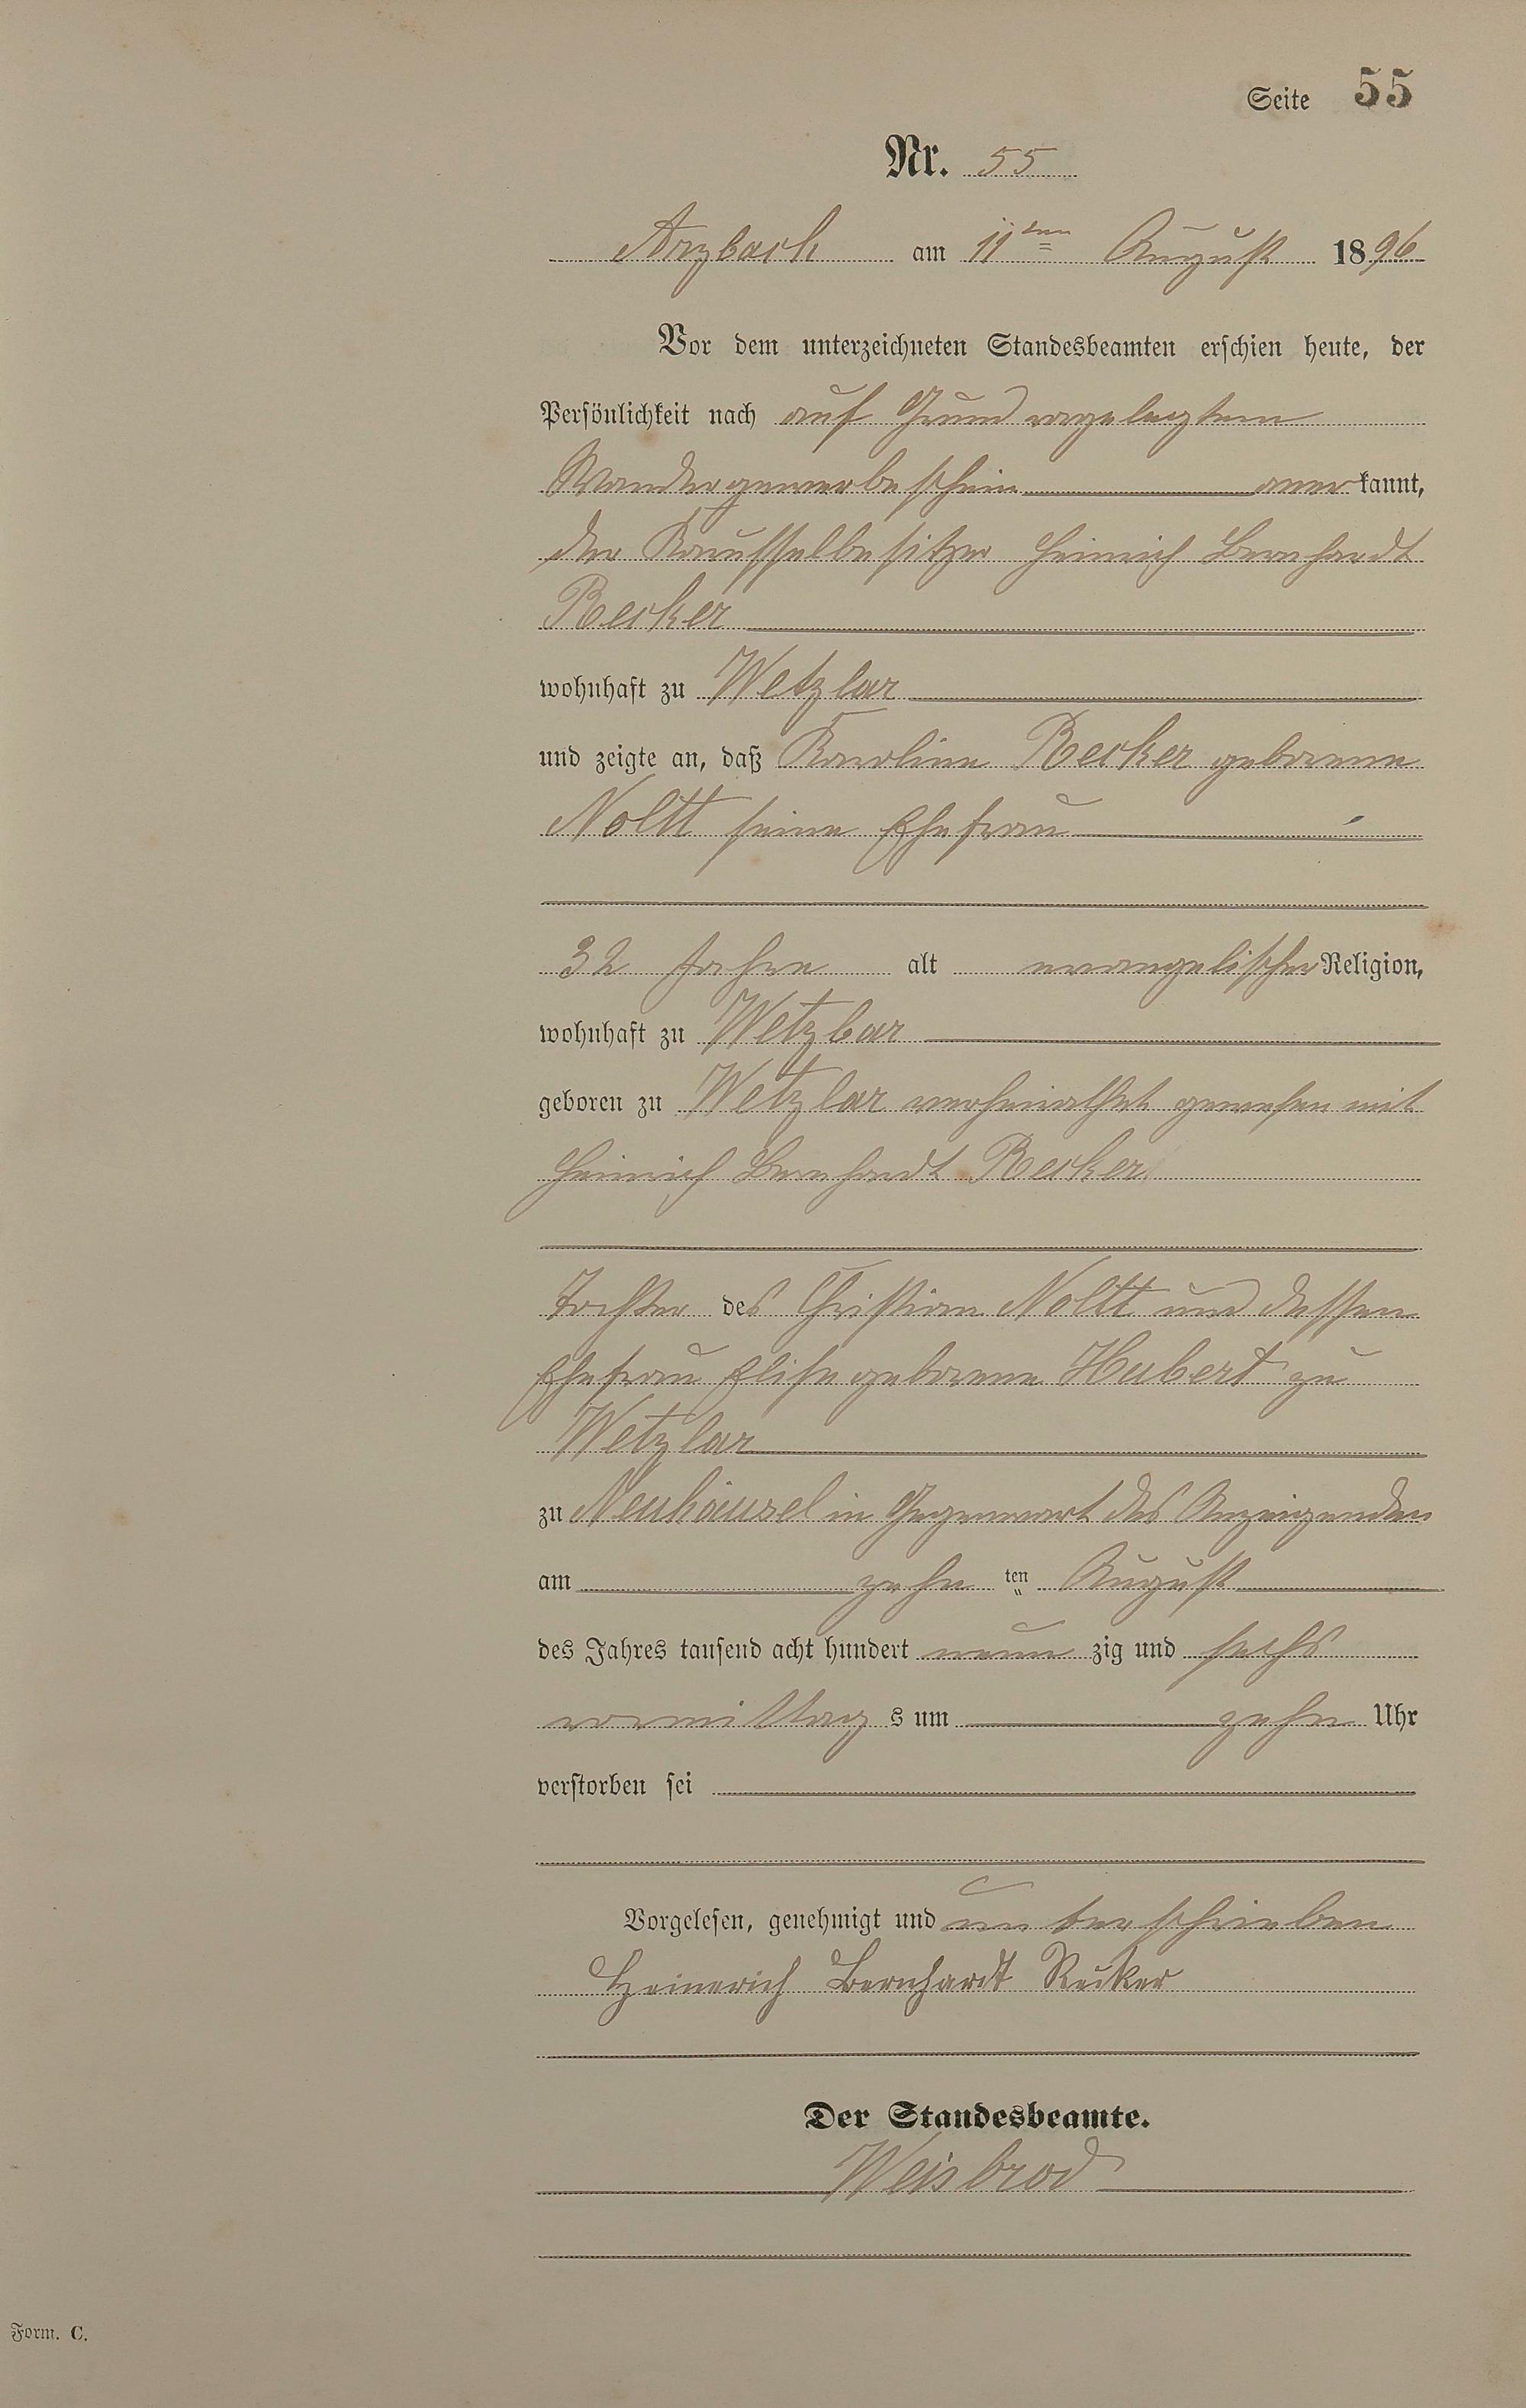 Seite 55
Nr. 55
Arzbach am 11ten August 1896
Vor dem unterzeichneten Standesbeamten erschien heute, der
Persönlichkeit nach auf Grund vorgelegtem
Wandergewerbeschein anerkannt,
der Karusselbesitzer Heinrich Bernhardt
Recker
wohnhaft zu Wetzlar
und zeigte an, daß Karoline Recker geborene
Noltt seine Ehefrau
32 Jahre alt evangelischer Religion,
wohnhaft zu Wetzlar
geboren zu Wetzlar verheirathet gewesen mit
Heinrich Bernhardt Recker
Tochter des Christian Noltt und dessen
Ehefrau Elise geborene Hubert zu
Wetzlar
zu Neuhäusel in Gegenwart des Anzeigenden
am zehn ten August
des Jahres tausend acht hundert neun zig und sechs
vormittag s um zehn Uhr
verstorben sei
Vorgelesen, genehmigt und unterschrieben
Heinerich Bernhardt Recker
Der Standesbeamte.
Weisbrod
Form. C.